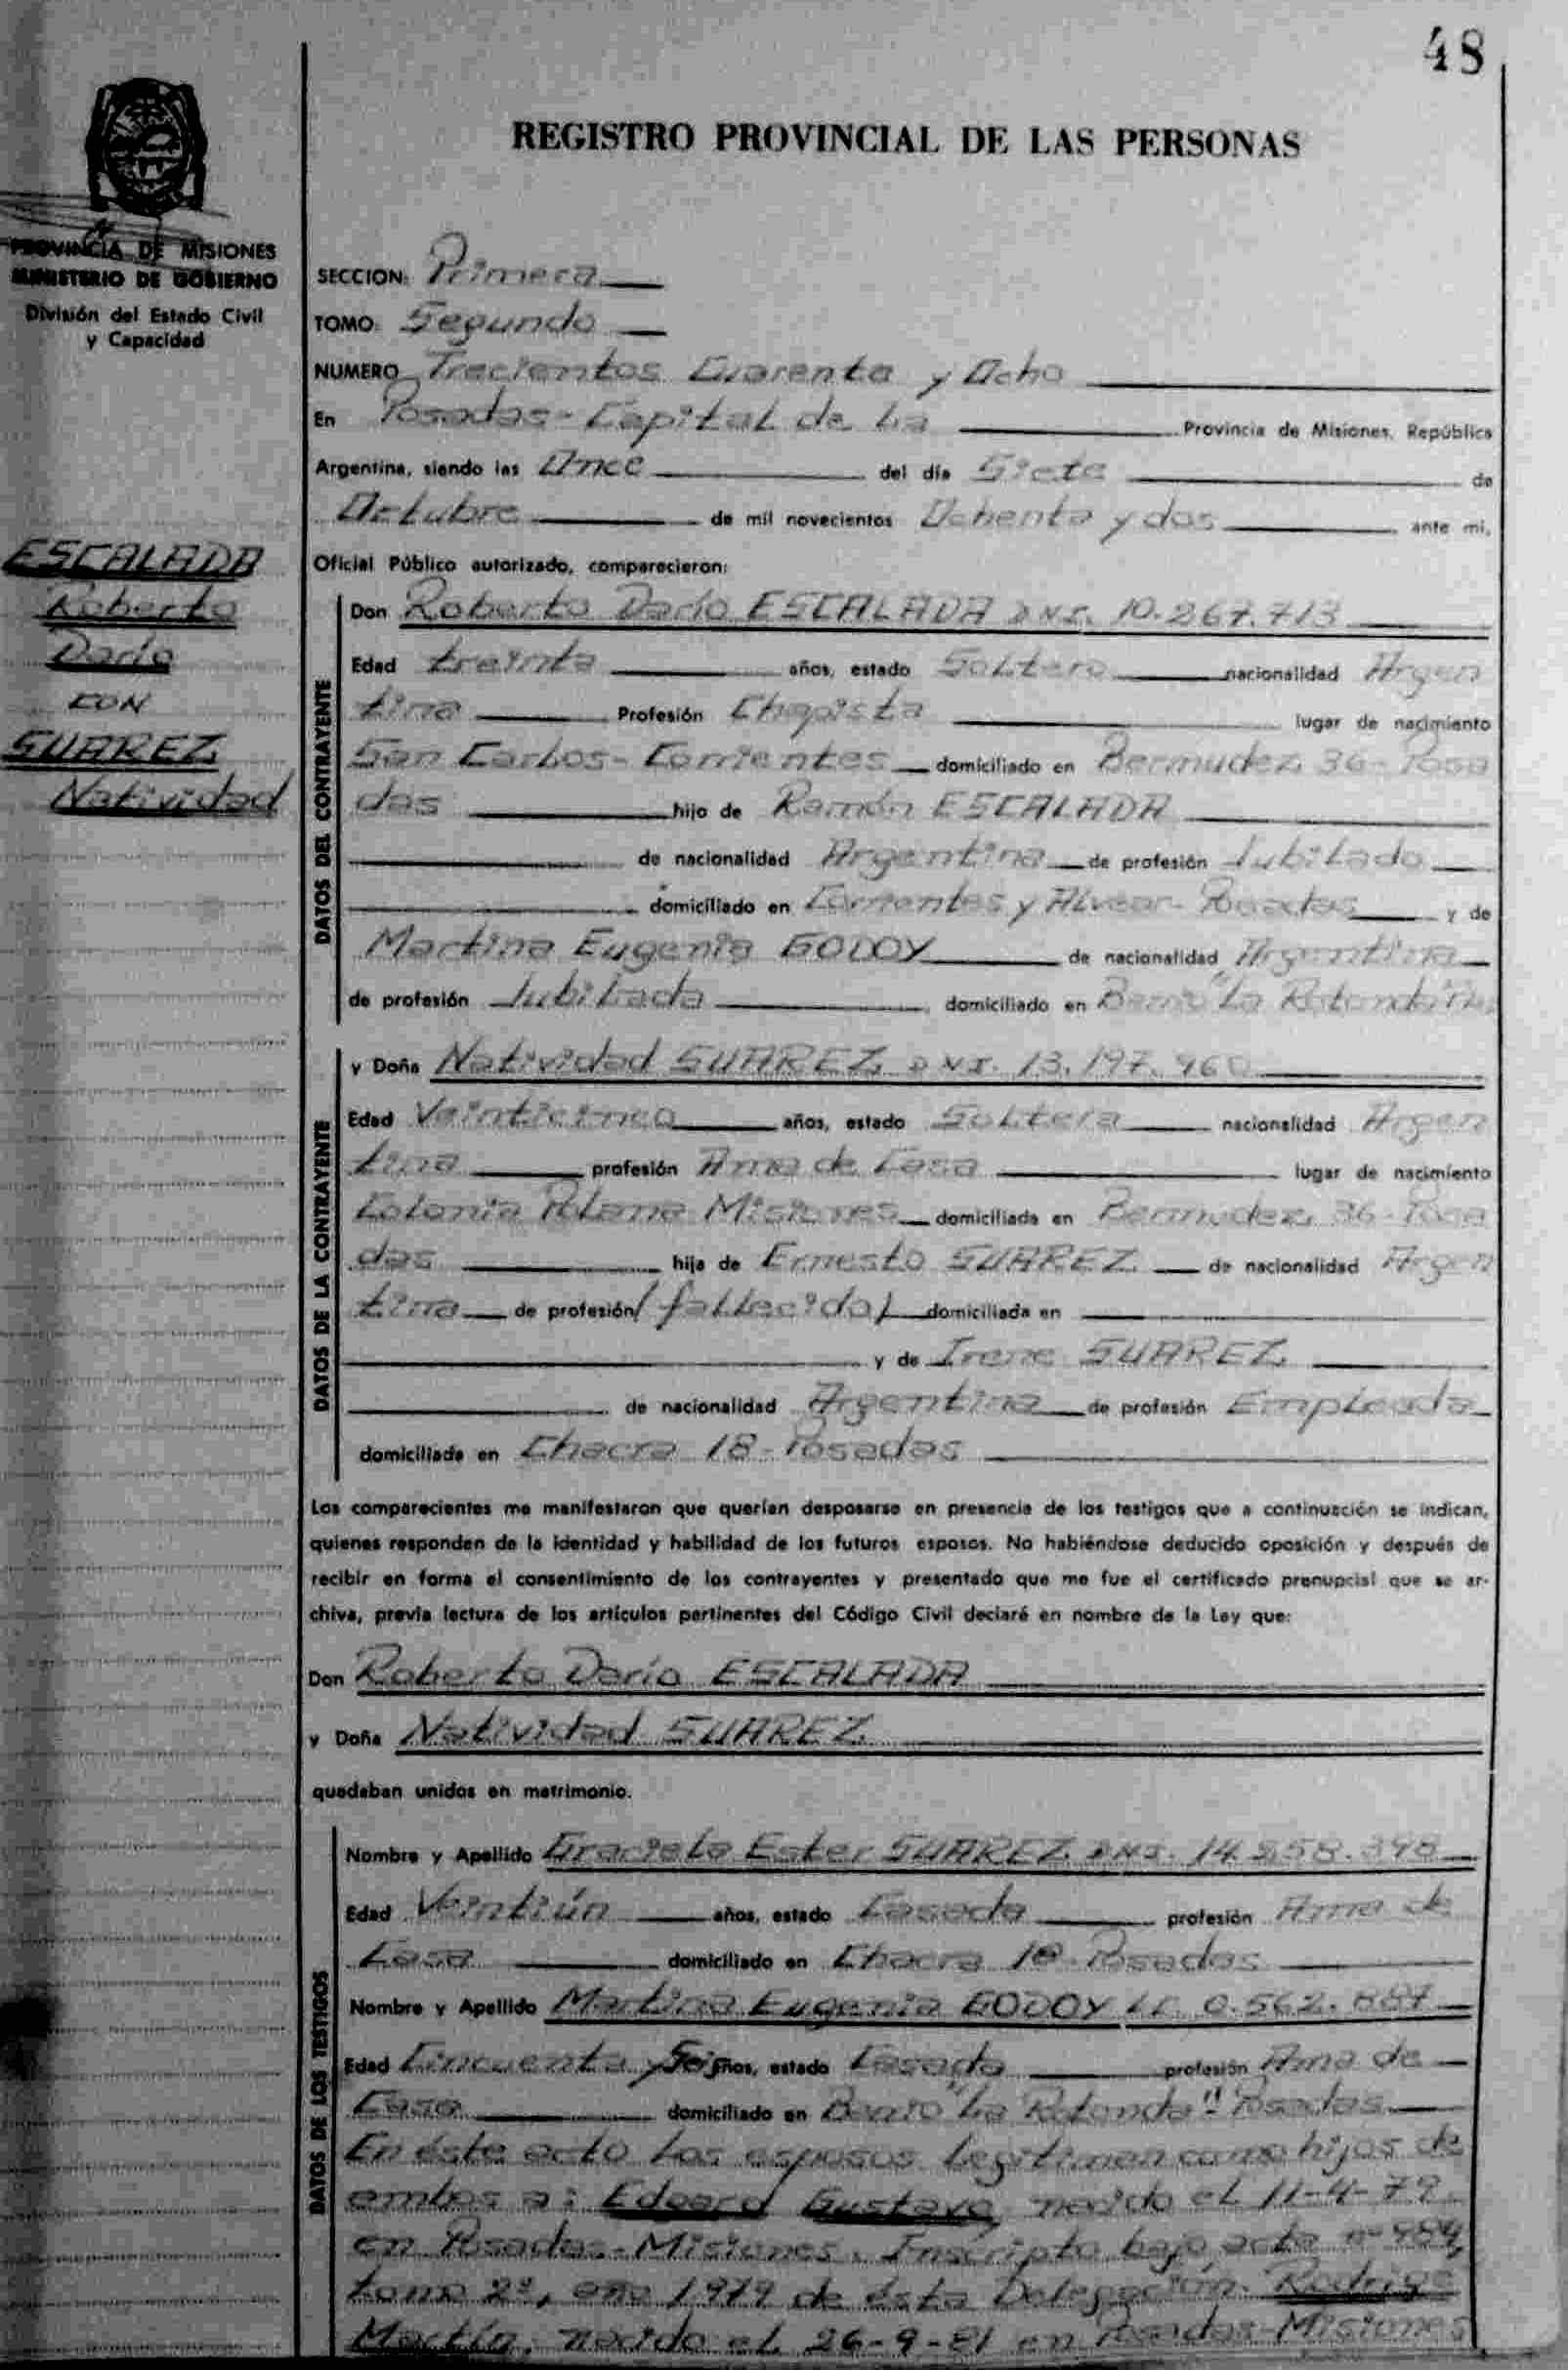 48
REGISTRO PROVINCIAL DE LAS PERSONAS
PROVINCIA DE MISIONES
MINISTERIO DE GOBIERNO
División del Estado Civil
y Capacidad
ESCALADA
Roberto
Darío
CON
SUAREZ
Natividad
SECCION: Primera
TOMO: Segundo
NUMERO Trecientos Cuarenta y Ocho
En Posadas - Capital de La Provincia de Misiones, República
Argentina, siendo las Once del día Siete de
Octubre de mil novecientos Ochenta y dos ante mi,
Oficial Público autorizado, comparecieron:
DATOS DEL CONTRAYENTE
Don Roberto Darío ESCALADA DNI. 10.267.713
Edad treinta años, estado Soltero nacionalidad Argen
tina Profesión Chapista lugar de nacimiento
San Carlos - Corrientes domiciliado en Bermudez 36 - Posa
das hijo de Ramón ESCALADA
de nacionalidad Argentina de profesión Jubilado
domiciliado en Corrientes y Alvear - Posadas y de
Martina Eugenia GODOY de nacionalidad Argentina
de profesión Jubilada domiciliado en Barrio "La Rotonda"
DATOS DE LA CONTRAYENTE
y Doña Natividad SUAREZ DNI. 13.197.960
Edad Veinticinco años, estado Soltera nacionalidad Argen
tina profesión Ama de Casa lugar de nacimiento
Colonia Polana Misiones domiciliada en Bermudez 36 - Posa
das hija de Ernesto SUAREZ de nacionalidad Argen
tina de profesión (fallecido) domiciliada en
y de Irene SUAREZ
de nacionalidad Argentina de profesión Empleada
domiciliada en Chacra 18 - Posadas
Los comparecientes me manifestaron que querían desposarse en presencia de los testigos que a continuación se indican,
quienes responden de la identidad y habilidad de los futuros esposos. No habiéndose deducido oposición y después de
recibir en forma el consentimiento de los contrayentes y presentado que me fue el certificado prenupcial que se ar-
chiva, previa lectura de los artículos pertinentes del Código Civil declaré en nombre de la Ley que:
Don Roberto Darío ESCALADA
y Doña Natividad SUAREZ
quedaban unidos en matrimonio.
DATOS DE LOS TESTIGOS
Nombre y Apellido Graciela Ester SUAREZ DNI. 14.258.398
Edad Veintiún años, estado Casada profesión Ama de
Casa domiciliado en Chacra 18 - Posadas
Nombre y Apellido Martina Eugenia GODOY LC 0.562.887
Edad Cincuenta y Seis años, estado Casada profesión Ama de
Casa domiciliado en Barrio "La Rotonda" - Posadas
En éste acto los esposos legitiman como hijos de
ambos a: Edgard Gustavo, nacido el 11-4-79
en Posadas - Misiones. Inscripto bajo acta nº 984,
tomo 2º, año 1979 de ésta Delegación. Rodrigo
Martín, nacido el 26-9-81 en Posadas - Misiones